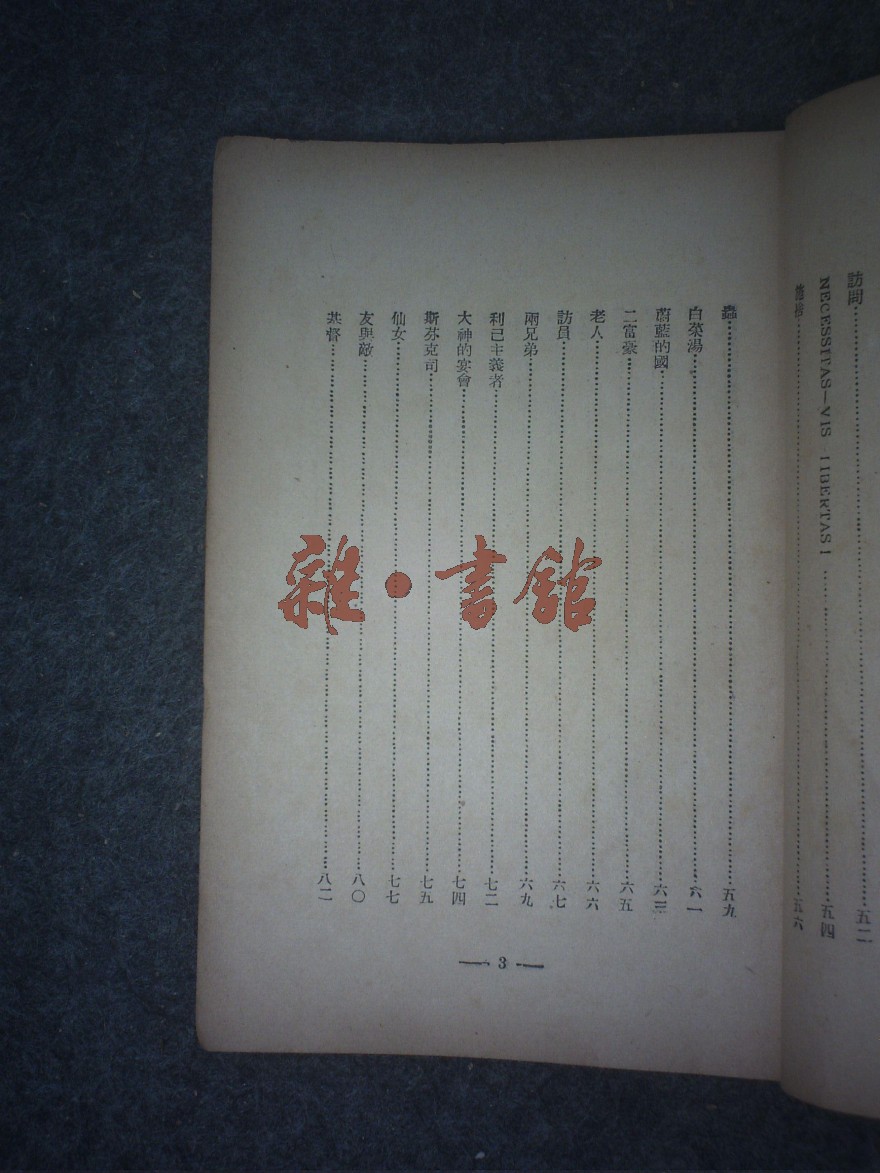 訪問……五二
NECESSITAS—VIS LIBERTAS !……五四
施捨……五六
蟲……五九
白菜湯……六一
蔚藍的國……六三
二富豪……六五
老人……六六
訪員……六七
兩兄弟……六九
利己主義者……七二
大神的宴會……七四
斯芬克司……七五
仙女……七七
友與敵……八〇
基督……八二
— 3 —
雜·書館